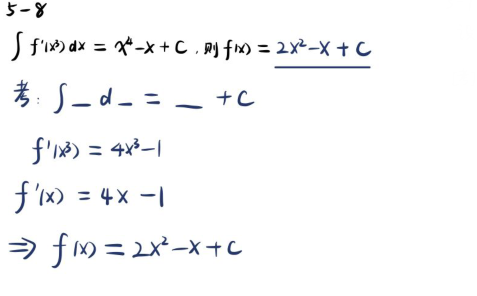 5-8
∫ f'(x³) dx = x⁴-x+C , 则 f(x) = 2x²-x+C
考: ∫ _ d _ = _ +C
f'(x³) = 4x³-1
f'(x) = 4x-1
⇒ f(x) = 2x²-x+C